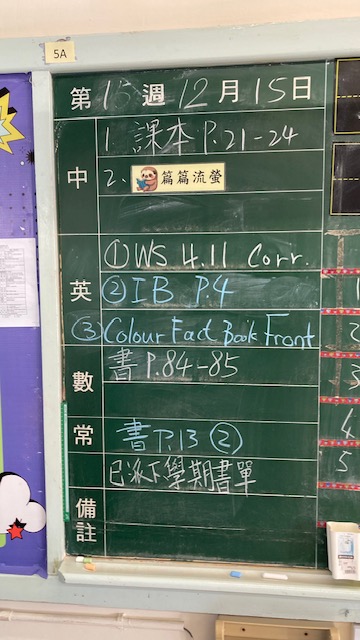 5A
第15週12月15日
中
1. 課本 P.21-24
2. 篇篇流螢
英
① WS 4.11 Corr.
② IB P.4
③ Colour Fact Book Front
數
書 P.84-85
常
書 P.13 ②
備註
已派下學期書單
1
2
3
4
5